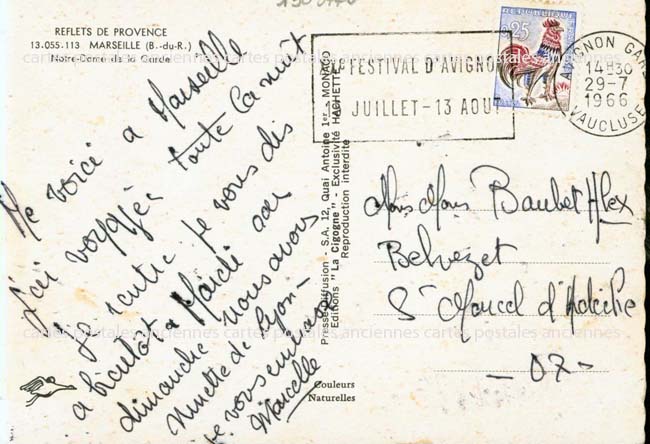 REFLETS DE PROVENCE
13.055.113 MARSEILLE (B.-du-R.)
Notre-Dame de la Garde
Me voici à Marseille
j'ai voyagée toute la nuit
je rentre je vous dis
a bientôt a Mardi car
dimanche nous avons
Ninette de Lyon -
je vous embrasse
Marcelle
Couleurs
Naturelles
Presses-Diffusion - S.A. 12, Quai Antoine 1er - MONACO
Editions "La Cigogne" - Exclusivité HACHETTE
Reproduction interdite
FESTIVAL D'AVIGNON
JUILLET - 13 AOUT
0,25
AVIGNON GARE
14H30
29-7
1966
VAUCLUSE
Baubet Alex
Belvezet
St Marcel d'Ardèche
- 07 -
cartes postales anciennes cartes postales anciennes cartes postales anciennes
cartes postales anciennes cartes postales anciennes cartes postales anciennes